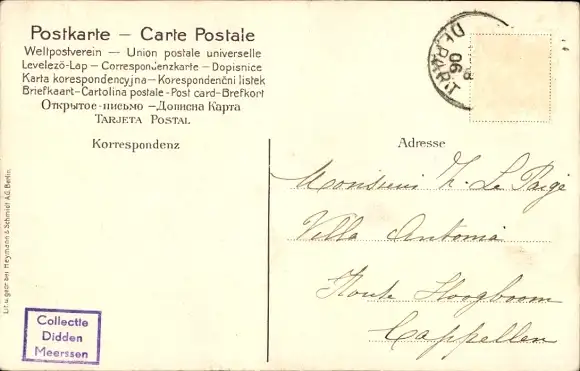 Postkarte — Carte Postale
Weltpostverein — Union postale universelle
Levelező-Lap — Correspondenzkarte — Dopisnice
Karta korespondencyjna — Korespondenční lístek
Briefkaart - Cartolina postale - Post card - Brefkort
Открытое письмо — Дописна Карта
Tarjeta Postal
Korrespondenz
Adresse
DEPART
06
Monsieur H. Le Paige
Villa Antonia
Route Hoogboom
Cappellen
Lit. u. gedr. bei Heymann & Schmidt A.G. Berlin.
Collectie
Didden
Meerssen